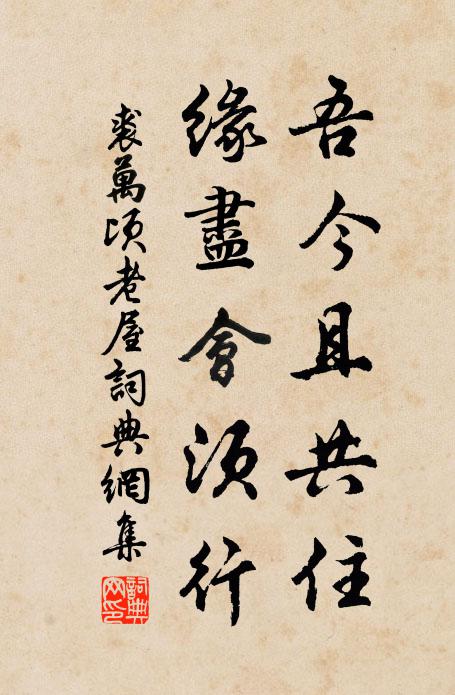 吾今且共住
緣盡會須行
裘萬頃老屋詞典網集
詞典網印